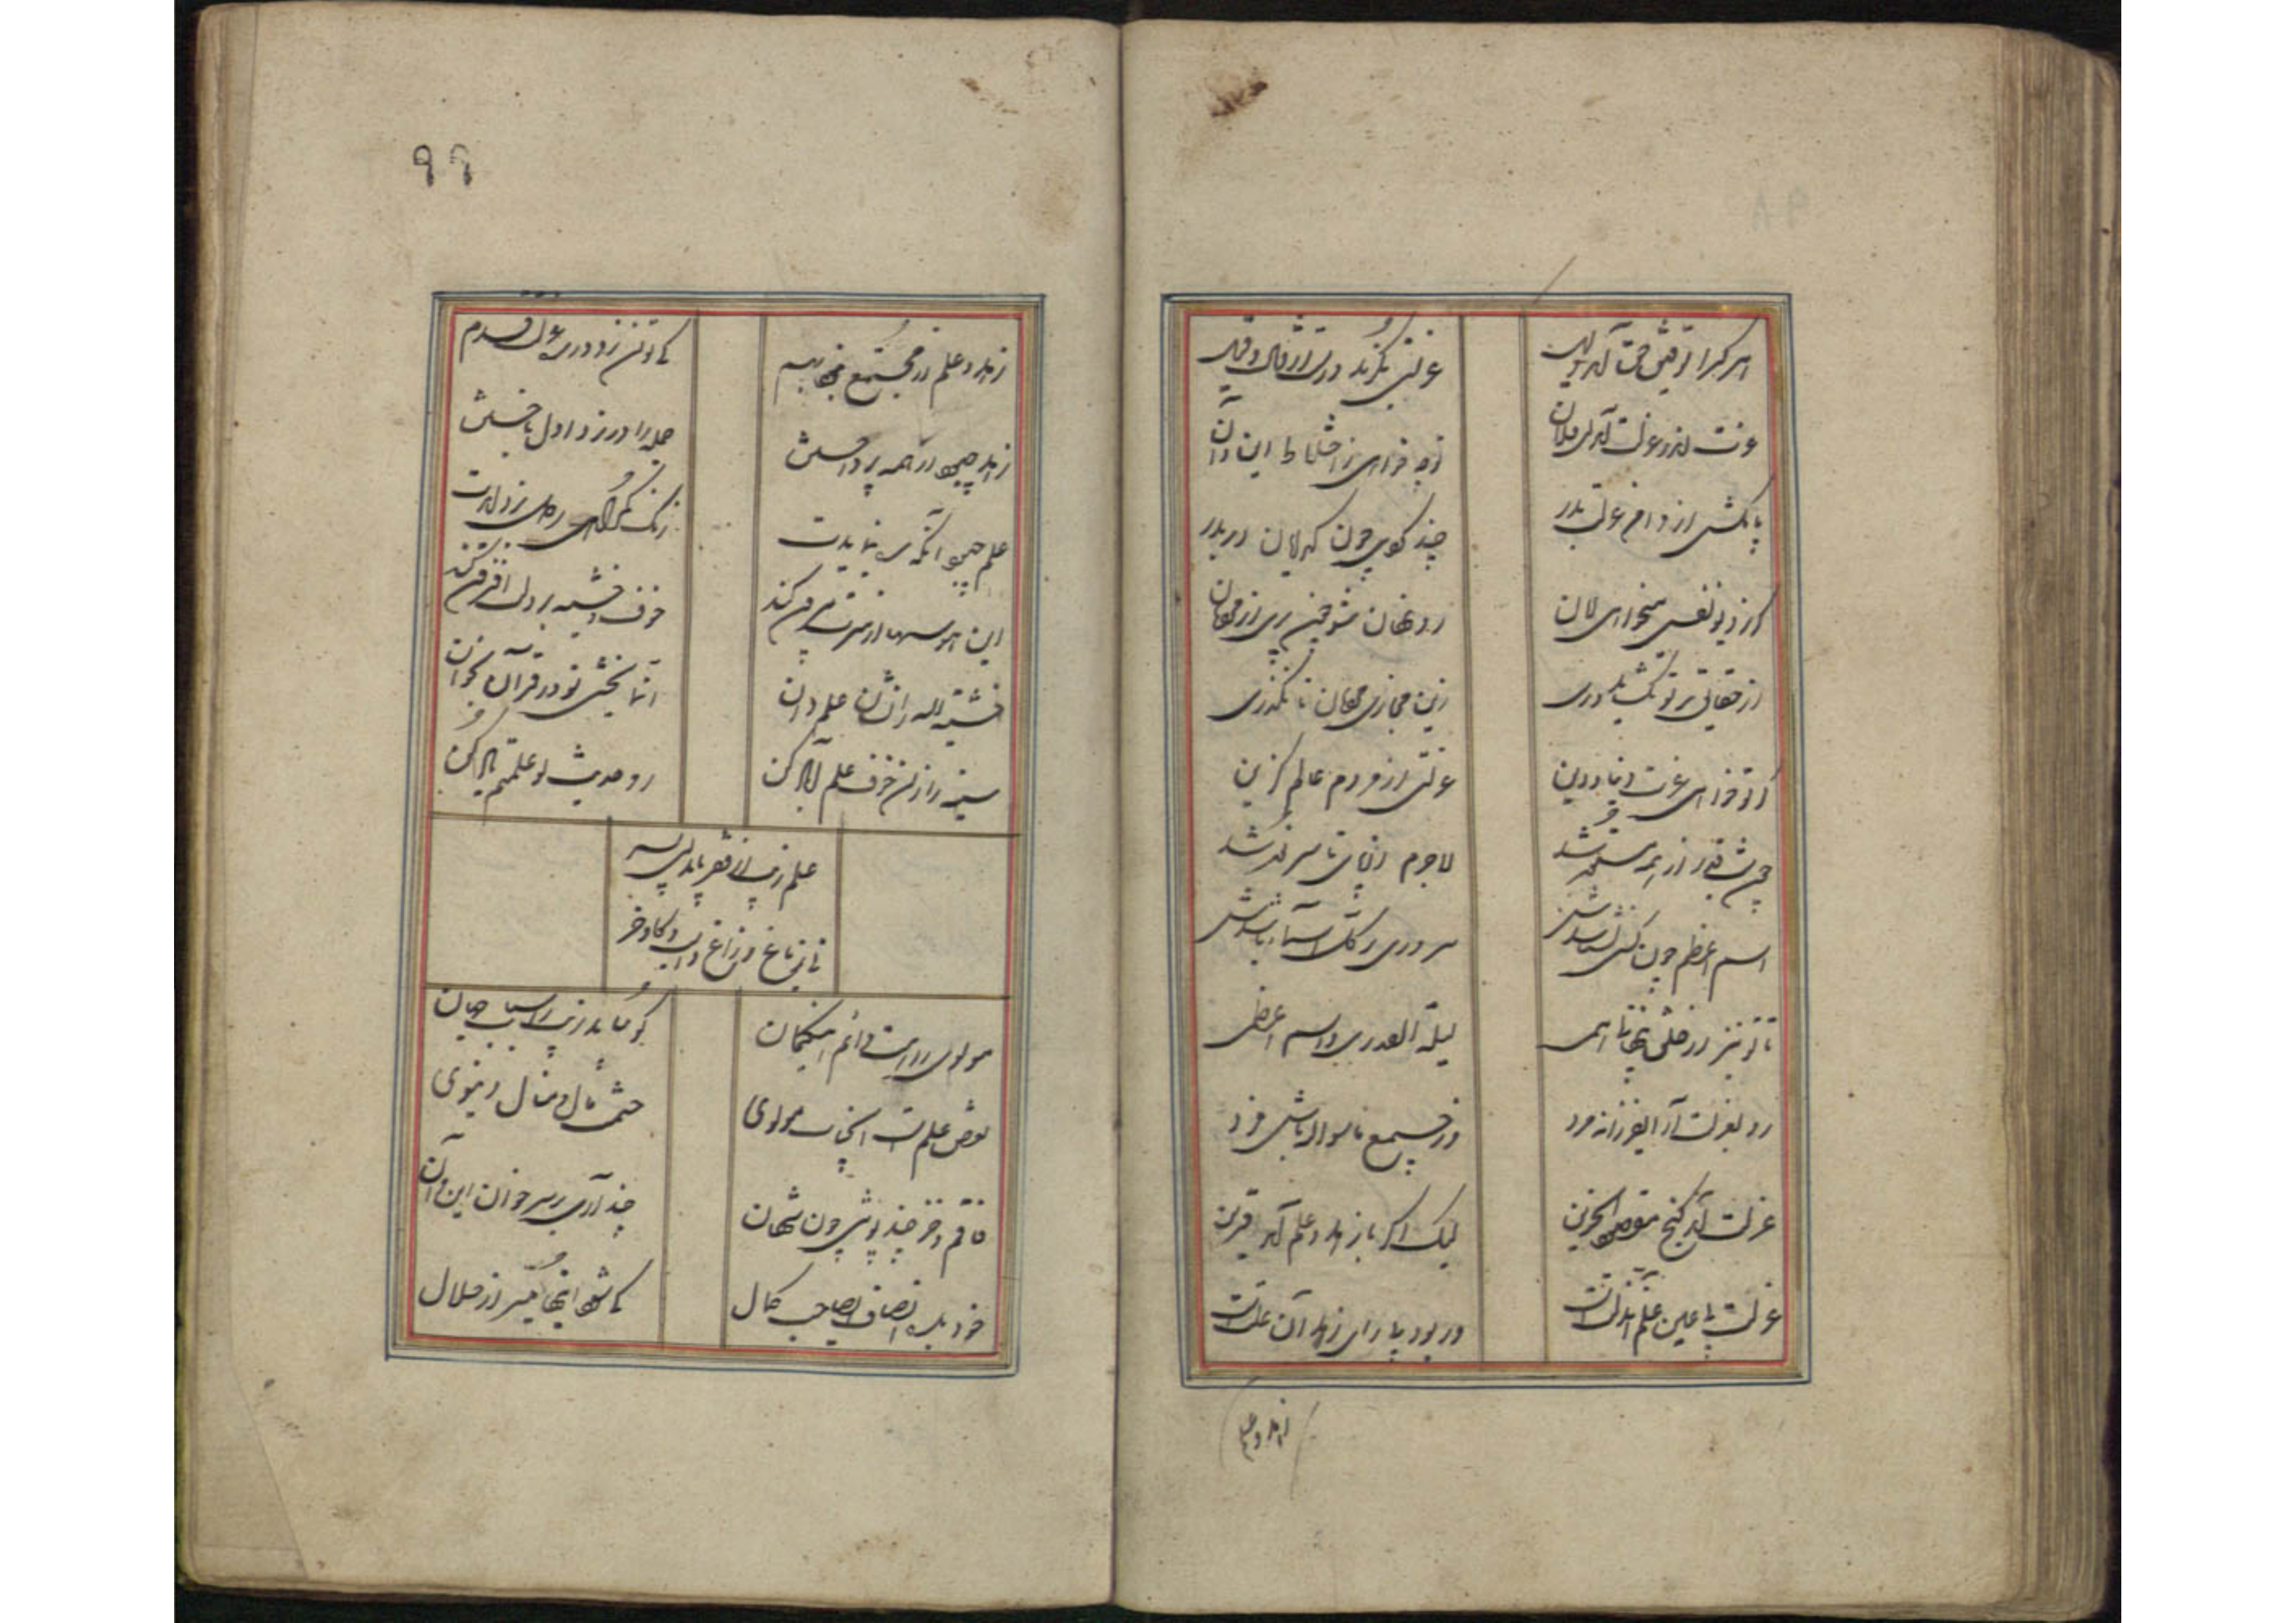 هر کرا توفیق حق آمد دلیل
عزلتی بگزید و رست از قال و قیل
عزت اندر عزلت آمد ای فلان
تو چه خواهی ز اختلاط این و آن
پا مکش از دامن عزلت بدر
چند چون کدایان در بدر
کر ز دیو نفس میخواهی امان
رو نهان شو چون پری از مردمان
از حقیقت بر تو نکشاید دری
زین مجازی مردمان تا نگذری
کر تو خواهی عزت دنیا و دین
عزلتی از مردم عالم کزین
چون شب قدر از همه مستور شد
لاجرم از پای تا سر نور شد
اسم اعظم چون کسی نشناسدش
سروری بر کل اسما باشدش
تا تو نیز از خلق پنهانی همی
لیلة القدری و اسم اعظمی
رو بعزلت آر ای فرزانه مرد
وز جمیع ماسوی الله باش فرد
عزلت آمد کنج مقصود ای حزین
لیک اگر با زهد و علم آید قرین
عزلت بی عین علم آن زلت است
ور بود بی زای زهد آن علت است
زهد و علم
۹۹
زهد و علم ار مجتمع نبود بهم
کی توان زد در ره عزلت قدم
زهد چبود از همه پرداختن
جمله را در داو اول باختن
علم چبود آنکه ره بنمایدت
زنک کمراهی ز دل بزدایدت
این هوسها از سرت بیرون کند
خوف و خشیت در دلت افزون کند
خشیة الله را نشان علم دان
انما یخشی تو در قرآن بخوان
سینه را از علم آباد کن
رو حدیث لو علمتم یاد کن
علم از فقر یابد ای پسر
نی ز باغ و زاغ و اسب و کاو و خر
مولوی را هست دائم این کمان
کو بیابد زیب ز اسباب جهان
نقص علمست ای جناب مولوی
حشمت و مال و منال دنیوی
قاقم و خز چند پوشی چون شهان
چند آری بر سر خوان این و آن
خود بده انصاف ای صاحب کمال
کی شود اینها میسر از حلال